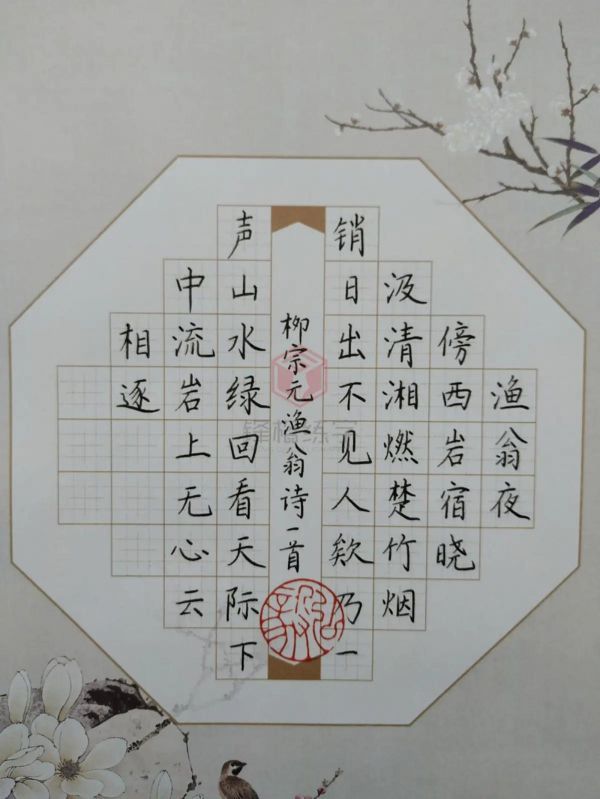 渔翁夜
傍西岩宿晓
汲清湘燃楚竹烟
销日出不见人欸乃一
柳宗元渔翁诗一首
声山水绿回看天际下
中流岩上无心云
相逐